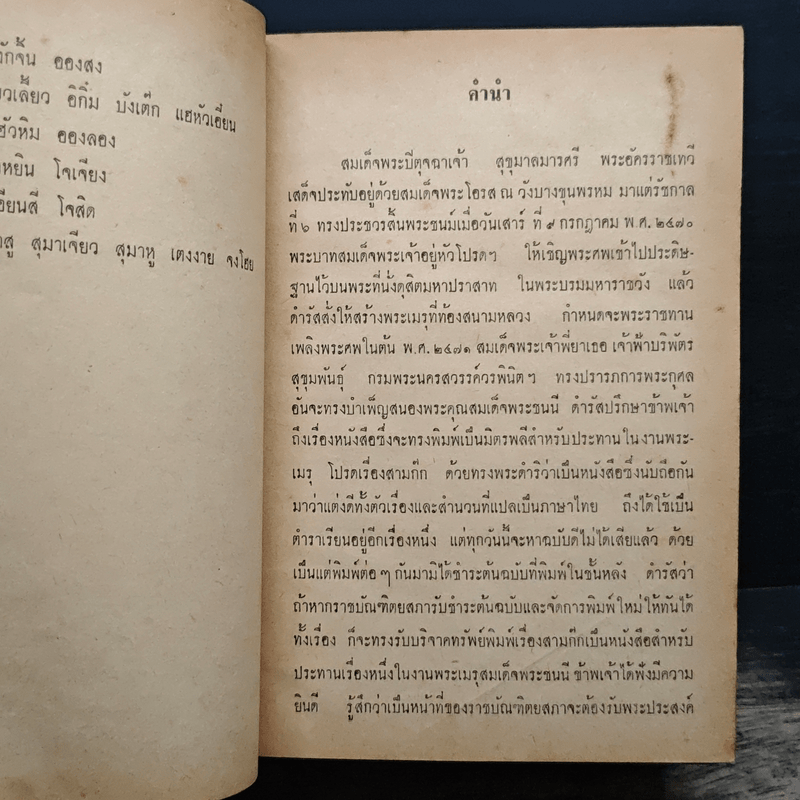 อองสง
อิกิ๋ม บังเต๊ก แฮหัวเอี๋ยน
อองลอง
โจเจียง
โจสิต
สุมาเจียว สุมาหู เตงงาย จงโฮย
คำนำ
สมเด็จพระปิตุจฉาเจ้า สุขุมาลมารศรี พระอัครราชเทวี
เสด็จประทับอยู่ด้วยสมเด็จพระโอรส ณ วังบางขุนพรหม มาแต่รัชกาล
ที่ ๖ ทรงประชวรสิ้นพระชนม์เมื่อวันเสาร์ ที่ ๙ กรกฎาคม พ.ศ. ๒๔๗๐
พระบาทสมเด็จพระเจ้าอยู่หัวโปรดฯ ให้เชิญพระศพเข้าไปประดิษ-
ฐานไว้บนพระที่นั่งดุสิตมหาปราสาท ในพระบรมมหาราชวัง แล้ว
ดำรัสสั่งให้สร้างพระเมรุที่ท้องสนามหลวง กำหนดจะพระราชทาน
เพลิงพระศพในต้น พ.ศ. ๒๔๗๑ สมเด็จพระเจ้าพี่ยาเธอ เจ้าฟ้าบริพัตร
สุขุมพันธุ์ กรมพระนครสวรรค์วรพินิตฯ ทรงปรารภการพระกุศล
อันจะทรงบำเพ็ญสนองพระคุณสมเด็จพระชนนี ดำรัสปรึกษาข้าพเจ้า
ถึงเรื่องหนังสือซึ่งจะทรงพิมพ์เป็นมิตรพลีสำหรับประทานในงานพระ-
เมรุ โปรดเรื่องสามก๊ก ด้วยทรงพระดำริว่าเป็นหนังสือซึ่งนับถือกัน
มาว่าแต่งดีทั้งตัวเรื่องและสำนวนที่แปลเป็นภาษาไทย ถึงได้ใช้เป็น
ตำราเรียนอยู่อีกเรื่องหนึ่ง แต่ทุกวันนี้จะหาฉบับดีไม่ได้เสียแล้ว ด้วย
เป็นแต่พิมพ์ต่อ ๆ กันมามิได้ชำระต้นฉบับที่พิมพ์ในชั้นหลัง ดำรัสว่า
ถ้าหากราชบัณฑิตยสภารับชำระต้นฉบับและจัดการพิมพ์ใหม่ให้ทันได้
ทั้งเรื่อง ก็จะทรงรับบริจาคทรัพย์พิมพ์เรื่องสามก๊กเป็นหนังสือสำหรับ
ประทานเรื่องหนึ่งในงานพระเมรุสมเด็จพระชนนี ข้าพเจ้าได้ฟังมีความ
ยินดี รู้สึกว่าเป็นหน้าที่ของราชบัณฑิตยสภาจะต้องรับพระประสงค์